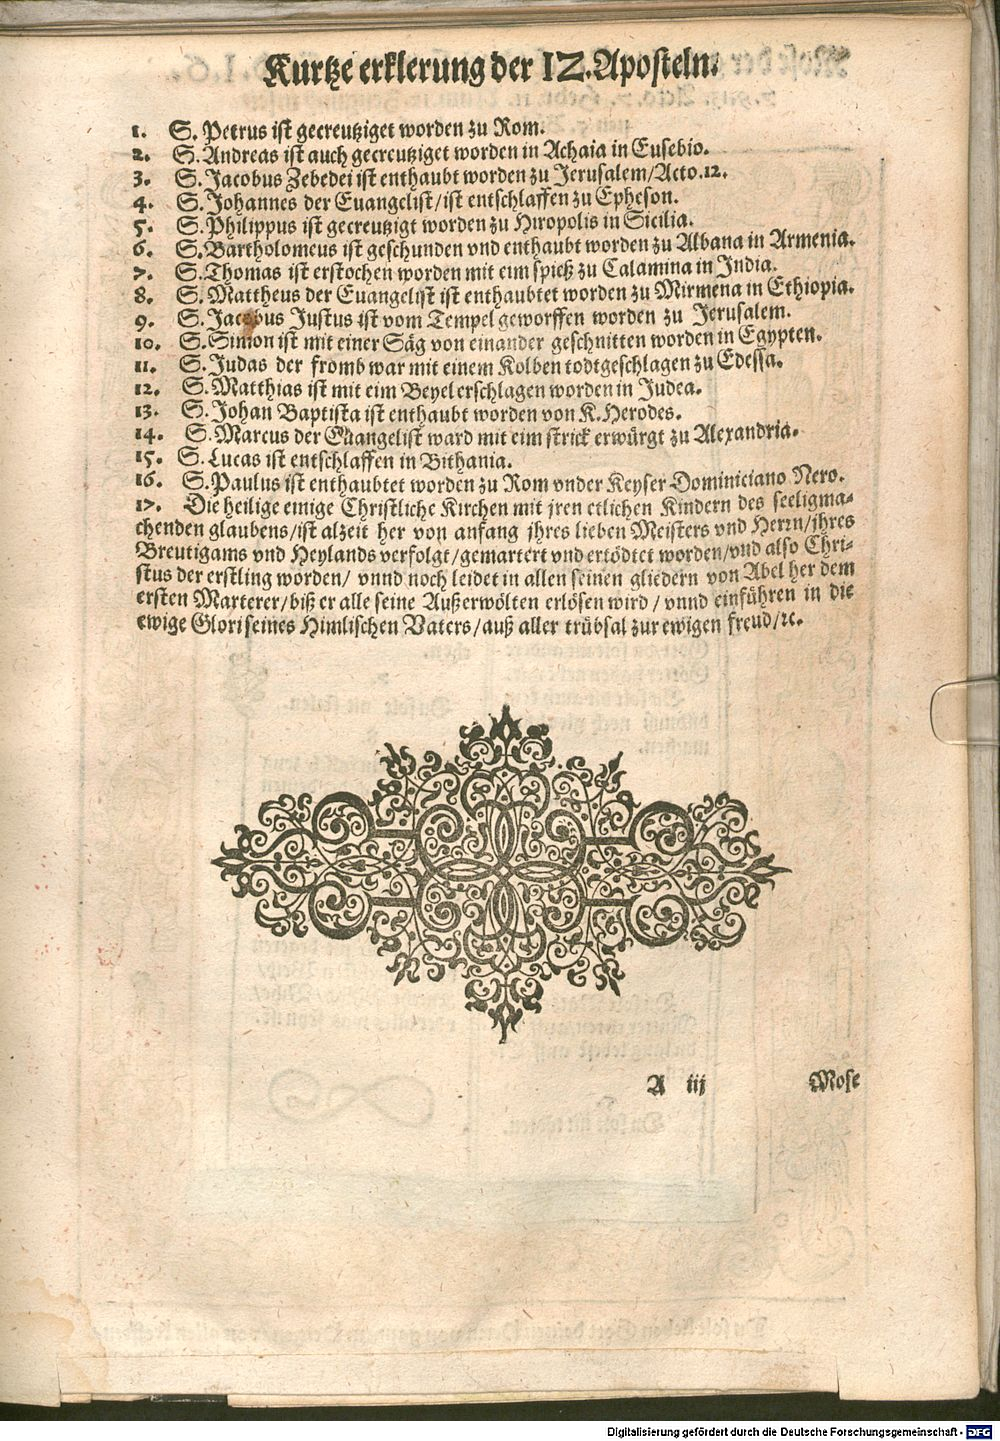 Kurtze erklerung der 12. Aposteln.
1. S. Petrus ist gecreutziget worden zu Rom.
2. S. Andreas ist auch gecreutziget worden in Achaia in Eusebio.
3. S. Jacobus Zebedei ist enthaubt worden zu Jerusalem/Acto.12.
4. S. Johannes der Euangelist/ist entschlaffen zu Epheson.
5. S. Philippus ist gecreutzigt worden zu Hiropolis in Sicilia.
6. S. Bartholomeus ist geschunden vnd enthaubt worden zu Albana in Armenia.
7. S. Thomas ist erstochen worden mit eim spieß zu Calamina in India.
8. S. Mattheus der Euangelist ist enthaubtet worden zu Mirmena in Ethiopia.
9. S. Jacobus Justus ist vom Tempel geworffen worden zu Jerusalem.
10. S. Simon ist mit einer Säg von einander geschnitten worden in Egypten.
11. S. Judas der fromb war mit einem Kolben todtgeschlagen zu Edessa.
12. S. Matthias ist mit eim Beyel erschlagen worden in Judea.
13. S. Johan Baptista ist enthaubt worden von K. Herodes.
14. S. Marcus der Euangelist ward mit eim strick erwürgt zu Alexandria.
15. S. Lucas ist entschlaffen in Bithania.
16. S. Paulus ist enthaubtet worden zu Rom vnder Keyser Dominiciano Nero.
17. Die heilige einige Christliche Kirchen mit jren etlichen Kindern des seeligma-
chenden glaubens/ist alzeit her von anfang jhres lieben Meisters vnd Herrn/jhres
Breutigams vnd Heylands verfolgt/gemartert vnd ertödtet worden/vnd also Chri-
stus der erstling worden/ vnnd noch leidet in allen seinen gliedern von Abel her dem
ersten Marterer/biß er alle seine Außerwölten erlösen wird/vnnd einführen in die
ewige Glori seines Himlischen Vaters/auß aller trübsal zur ewigen freud/ꝛc.
A iij Mose
Digitalisierung gefördert durch die Deutsche Forschungsgemeinschaft - DFG